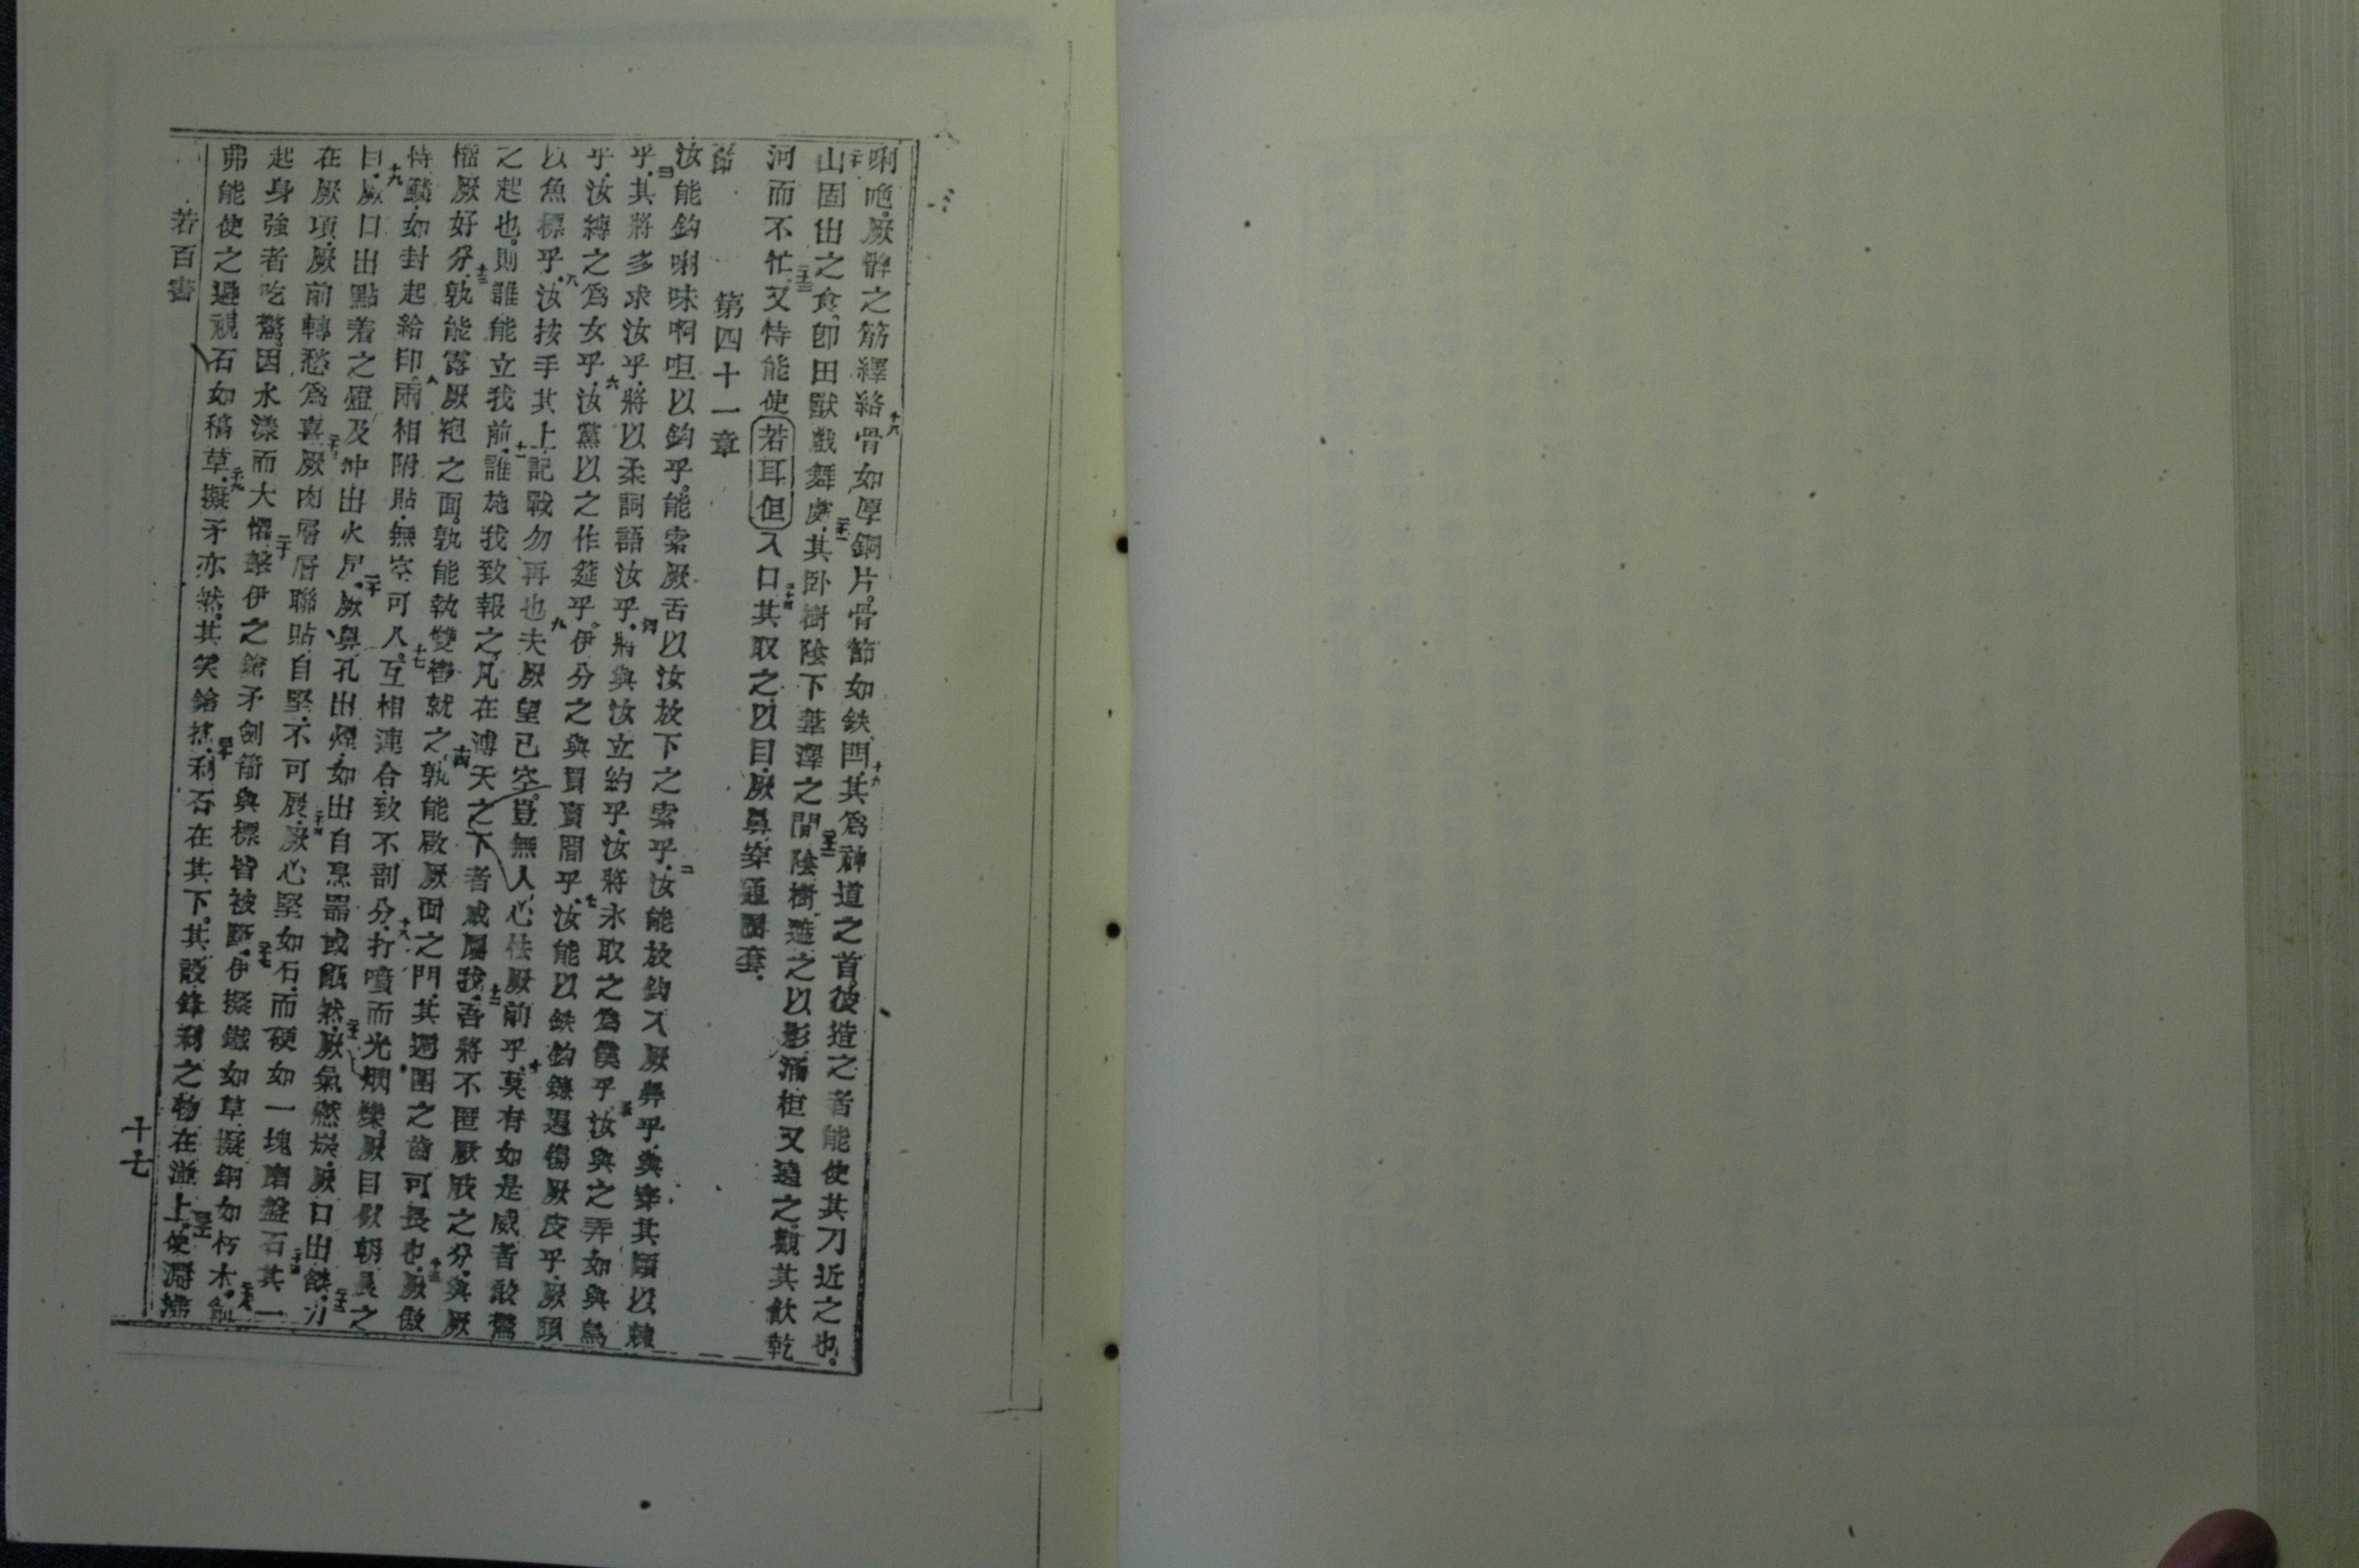 唎咃.厥骿之筋繹絡骨如厚銅片.骨節如鉄閂.其為神道之首.彼造之者能使其刀近之也.
山固出之食.即田獸戲舞處.其卧樹陰下葦澤之間.陰樹遮之以影.涌柜又遶之.觀其飲乾
河而不忙.又恃能使若耳但入口.其取之以目.厥鼻穿通圈套.
節 第四十一章
汝能鈎唎味啊呾以鈎乎.能索厥舌以汝放下之索乎.汝能放鈎入厥鼻乎.與穿其頤以棘
乎.其將多求汝乎.將以柔詞語汝乎.將與汝立約乎.汝將永取之為僕乎.汝與之弄如與鳥
乎.汝縛之為女乎.汝黨以之作筵乎.伊分之與買賣間乎.汝能以鉄鈎鏈遏傷厥皮乎.厥頭
以魚標乎.汝按手其上.記戰勿再也.夫厥望已空.豈無人心怯厥前乎.莫有如是威者敢驚
之起也.則誰能立我前.誰施我致報之.凡在溥天之下者咸屬我.吾將不匿厥肢之分.與厥
權厥好分.孰能露厥袍之面.孰能執雙轡就之.孰能啟厥面之門.其週圍之齒可畏也.厥傲
恃鱗.如封起給印.兩相附貼.無空可入.互相連合.致不剖分.打噴而光烱爍.厥目似朝晨之
目.厥口出點着之燈及冲出火星.厥鼻孔出煙.如出自烹器或甑然.厥氣燃炭.厥口出燄.力
在厥項.厥前轉愁為喜.厥肉層層聯貼.自堅.不可展.厥心堅如石.而硬如一塊磨盤石.其一
起身強者吃驚.因水漾而大懼.擊伊之鎗矛劍箭與標皆被斷.伊擬鐵如草.擬銅如朽木.箭
弗能使之過.視石如稿草.擬矛亦然.其笑鎗搖.利石在其下.其設鋒利之物在泥上.使淵沸
若百書
十七